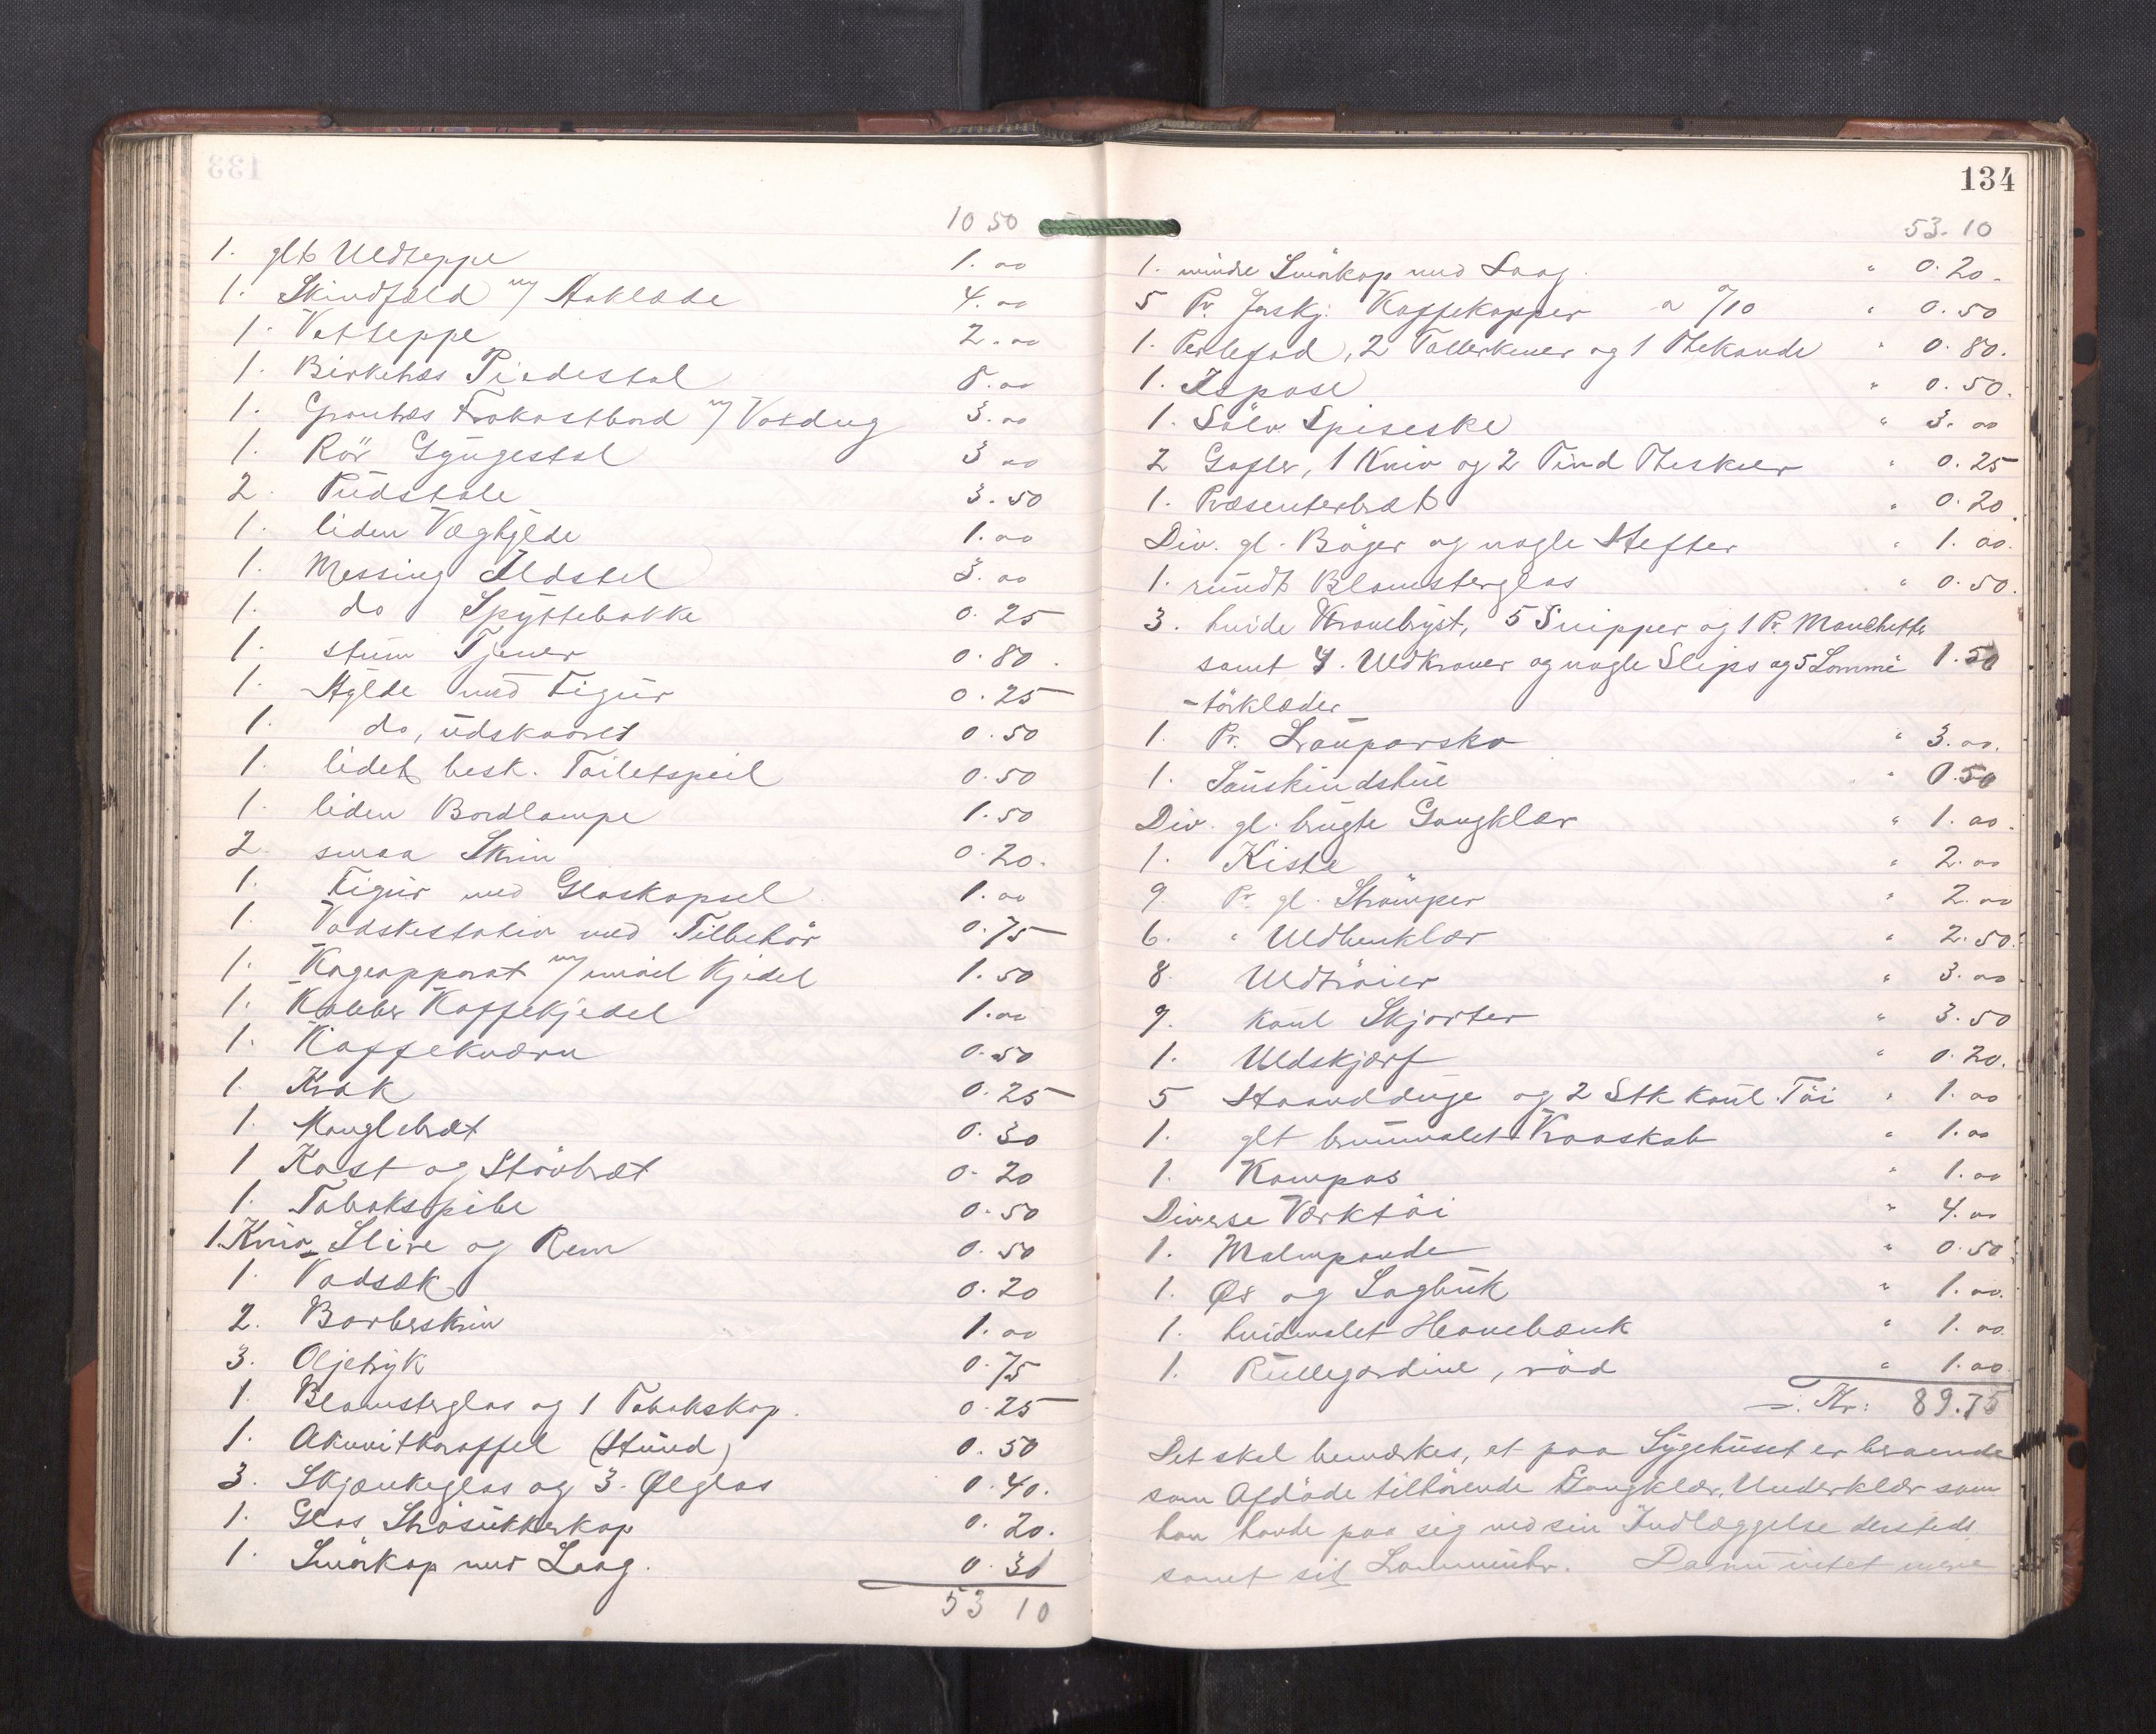 10 50
1. glt Uldteppe 1.00
1. Skindfæld m/ Aaklæde 4.00
1. Vatteppe 2.00
1. Birketræs Piedestal 5.00
1. Grantræs Frokostbord m/ Voxdug 3.00
1. Rör Gyngestol 3 00
2. Pudstole 3.50
1. liden Væghylde 1.00
1. Messing Ildstel 3.00
1. do Spyttebakke 0.25
1. stum Tjener 0.80.
1. Hylde med Figur 0.25
1. do, udskaaret 0.50
1. lidet besk. Toiletspeil 0.50
1. liden Bordlampe 1.50
2. smaa Skrin 0.20.
1. Figur med Glaskapsel 1.00
1. Vadskestativ med Tilbehör 0.75
1. Kogeapparat m/ email Kjedel 1.50
1. Kobber Kaffekjedel 1.00
1. Kaffekværn 0.50
1. Krak 0.25
1. Manglebræt 0.30
1 Kost og Stövbræt 0.20
1. Tobakspibe 0.50
1. Kniv, Slire og Rem 0.50
1. Vadsæk 0.20
2. Barberskrin 1.00
3. Oljetryk 0.75
1. Blomsterglas og 1 Tobakskop. 0.25
1. Akvavitkaraffel (Hund) 0.50
3. Skjænkeglas og 3. Ølglas 0.40.
1. Glas Strösukkerkop 0.20.
1. Smörkop med Laag. 0.30
53 10
134
53.10
1. mindre Smörkop med Laag. " 0.20.
5 Pr. forskj. Kaffekopper a "/10 " 0.50
1. Perlefad, 2 Tallerkener og 1 Thekande " 0.80.
1. Ispose " 0.50.
1. Sölv Spiseske " 3.00
2 Gafler, 1 Kniv og 2 Tind Theskeer " 0.25
1. Præsenterbræt " 0.20.
Div. gl. Böger og nogle Hefter " 1.00.
1. rundt Blomsterglas " 0.50.
3. hvide Kravebryst, 5 Snipper og 1 Pr. Manchetter
samt 4. Uldkraver og nogle Slips og 5 Lomme 1.50
-törklæder
1. Pr. Sko " 3.00.
1. Sauskindshue " 0.50
Div. gl. brugte Gangklær " 1.00.
1. Kiste " 2.00
9. Pr. gl. Strömper " 2.00
6. " Uldbenklær " 2.50.
8 Uldtröier " 3.00
7. koul Skjorter " 3.50
1. Uldskjærf " 0.20.
5 Haandduge og 2 Stk koul. Töi " 1.00
1. glt brunmalet Kraaskab " 1.00
1. Kompas " 1.00
Diverse Værktöi " 4.00
1. Malmpande " 0.50
1. Øx og Sagbuk " 1.00.
1. hvidmalet Havebænk " 1.00
1. Rullegardine, röd " 1.00
Kr: 89.75
Det skal bemærkes, at paa Sygehuset er beroende
som Afdöde tilhörende Gangklær, Underklær som
han havde paa sig ved sin Indlæggelse dersteds
samt sit Lommeuhr. Da nu intet mere